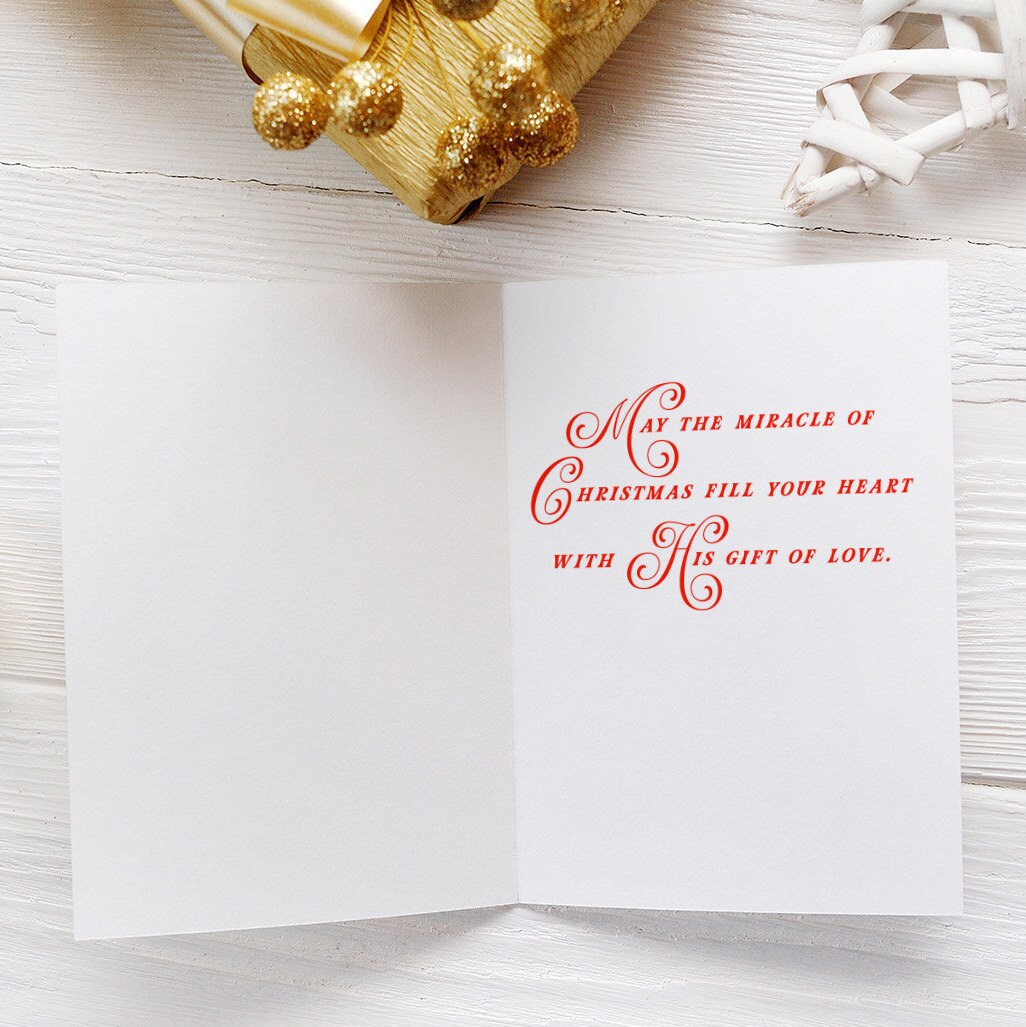 May the miracle of
Christmas fill your heart
with His gift of love.